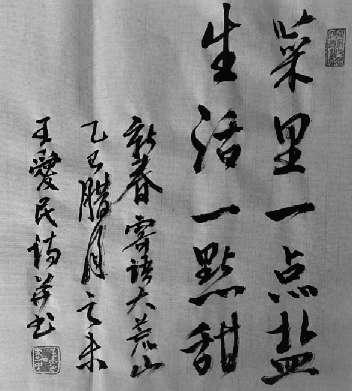 菜里一点盐
生活一點甜
新春寄语大荒山
乙巳腊月之末
王愛民诗并书